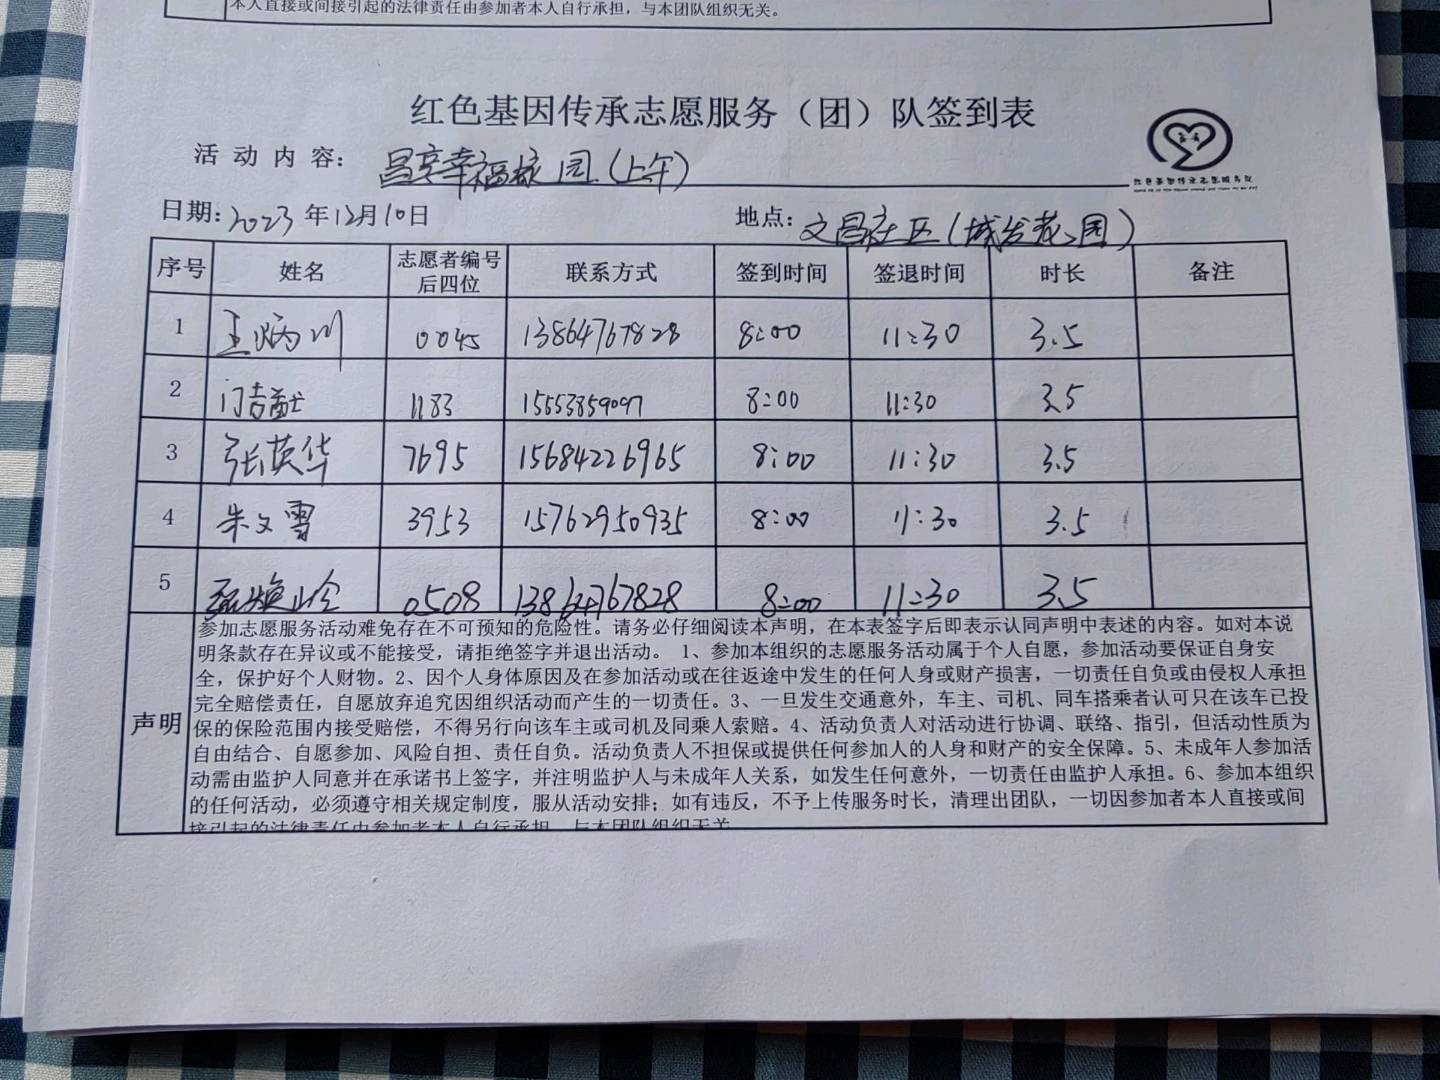 本人直接或间接引起的法律责任由参加者本人自行承担，与本团队组织无关。
红色基因传承志愿服务（团）队签到表
活动内容：昌享幸福家园（上午）
红色基因传承志愿服务队
日期：2023年12月10日 地点：文昌社区（城发花园）
序号 姓名 志愿者编号后四位 联系方式 签到时间 签退时间 时长 备注
1 王炳川 0045 13864767828 8:00 11:30 3.5
2 1183 15553859097 8:00 11:30 3.5
3 张英华 7695 15684226965 8:00 11:30 3.5
4 朱文雪 3953 15762950935 8:00 11:30 3.5
5 0508 13864767828 8:00 11:30 3.5
声明
参加志愿服务活动难免存在不可预知的危险性。请务必仔细阅读本声明，在本表签字后即表示认同声明中表述的内容。如对本说
明条款存在异议或不能接受，请拒绝签字并退出活动。 1、参加本组织的志愿服务活动属于个人自愿，参加活动要保证自身安
全，保护好个人财物。2、因个人身体原因及在参加活动或在往返途中发生的任何人身或财产损害，一切责任自负或由侵权人承担
完全赔偿责任，自愿放弃追究因组织活动而产生的一切责任。3、一旦发生交通意外，车主、司机、同车搭乘者认可只在该车已投
保的保险范围内接受赔偿，不得另行向该车主或司机及同乘人索赔。4、活动负责人对活动进行协调、联络、指引，但活动性质为
自由结合、自愿参加、风险自担、责任自负。活动负责人不担保或提供任何参加人的人身和财产的安全保障。5、未成年人参加活
动需由监护人同意并在承诺书上签字，并注明监护人与未成年人关系，如发生任何意外，一切责任由监护人承担。6、参加本组织
的任何活动，必须遵守相关规定制度，服从活动安排；如有违反，不予上传服务时长，清理出团队，一切因参加者本人直接或间
接引起的法律责任由参加者本人自行承担，与本团队组织无关